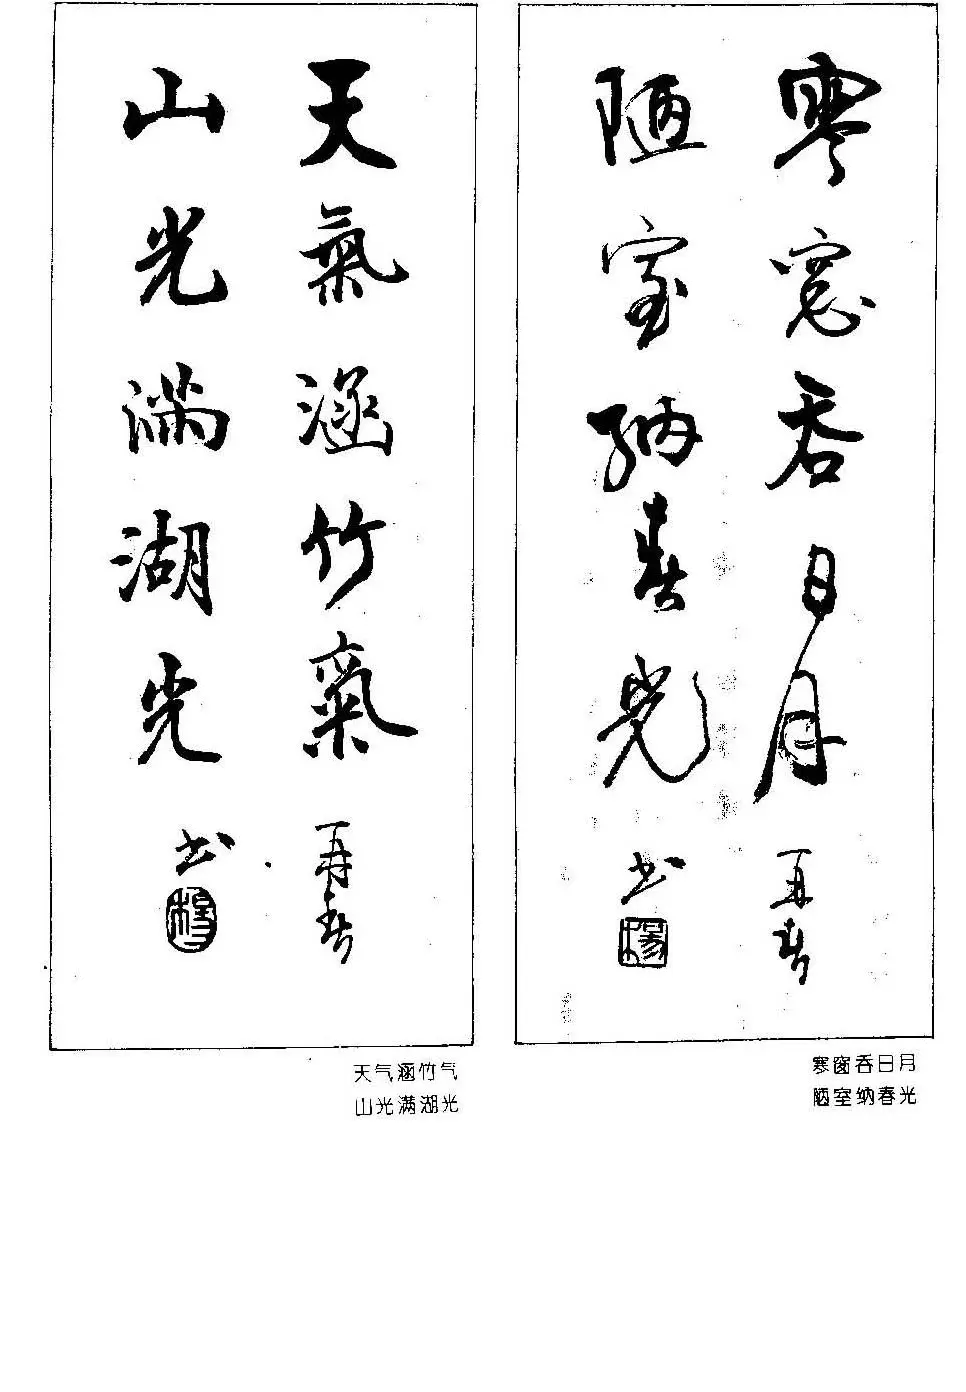 寒窓吞日月
再春
陋室纳春光
书
楊
寒窗吞日月
陋室纳春光
天氣涵竹氣
再春
山光满湖光
书
楊
天气涵竹气
山光满湖光